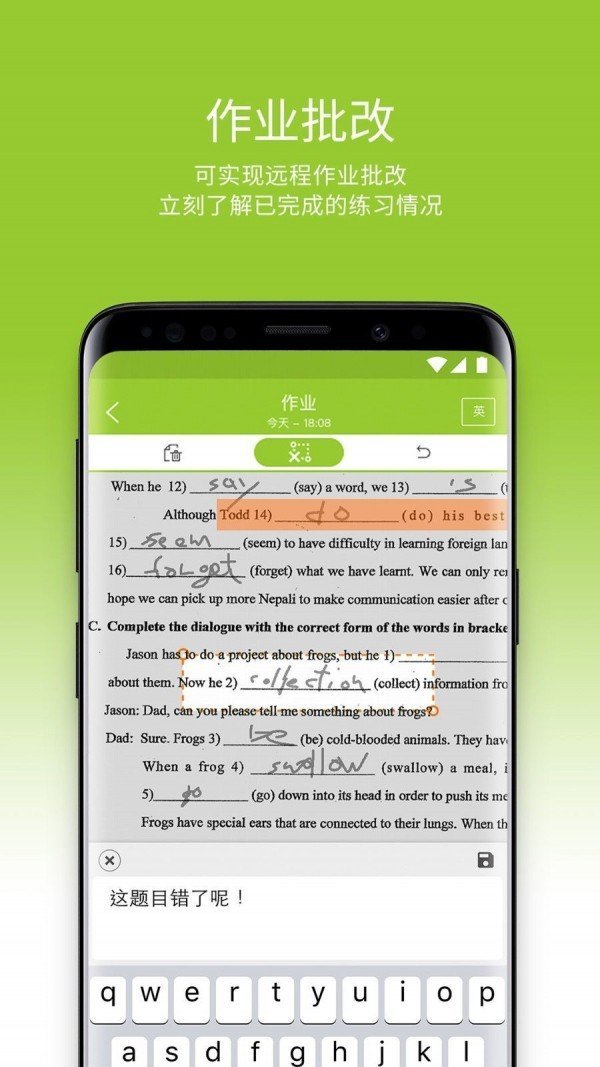 作业批改
可实现远程作业批改
立刻了解已完成的练习情况
作业
今天 – 18:08
英
When he 12) say (say) a word, we 13) 's
Although Todd 14) do (do) his best
15) seem (seem) to have difficulty in learning foreign lan
16) forget (forget) what we have learnt. We can only re
hope we can pick up more Nepali to make communication easier after
C. Complete the dialogue with the correct form of the words in bracke
Jason has to do a project about frogs, but he 1)
about them. Now he 2) collection (collect) information fro
Jason: Dad, can you please tell me something about frogs?
Dad: Sure. Frogs 3) be (be) cold-blooded animals. They hav
When a frog 4) swallow (swallow) a meal, i
5) go (go) down into its head in order to push its me
Frogs have special ears that are connected to their lungs. When th
这题目错了呢！
q w e r t y u i o p
a s d f g h j k l